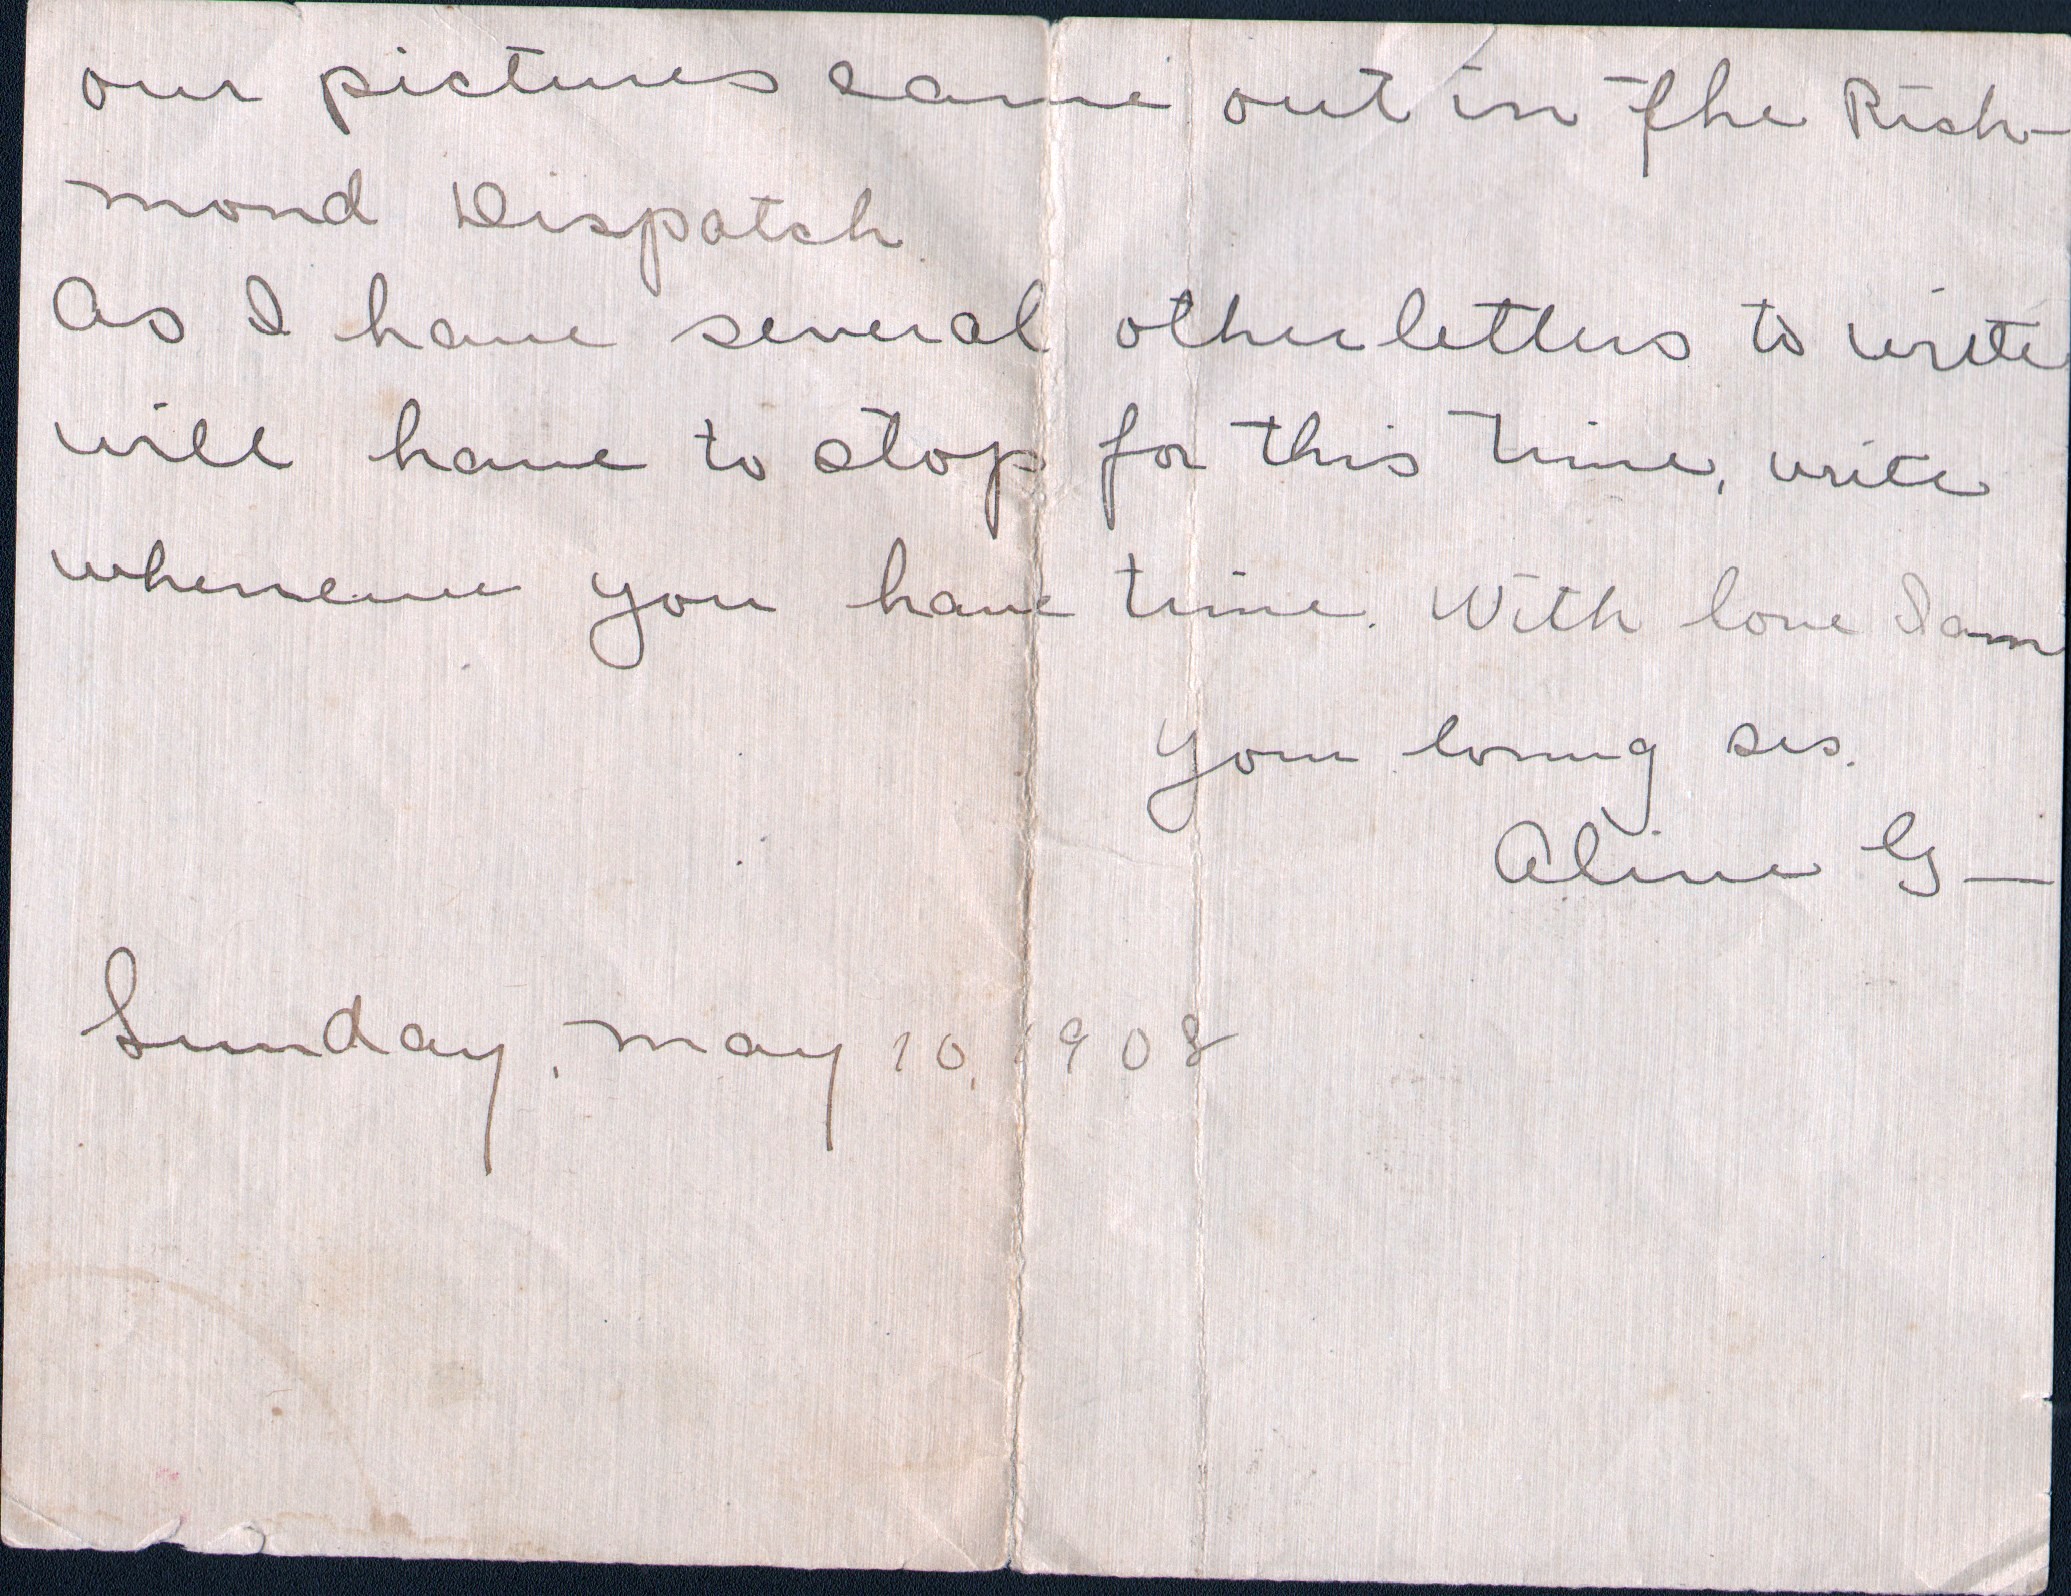 our pictures came out in the Rich-
mond Dispatch
As I have several other letters to write
will have to stop for this time, write
whenever you have time. With love I am
your loving sis.
Aline G—
Sunday, May 10, 1908